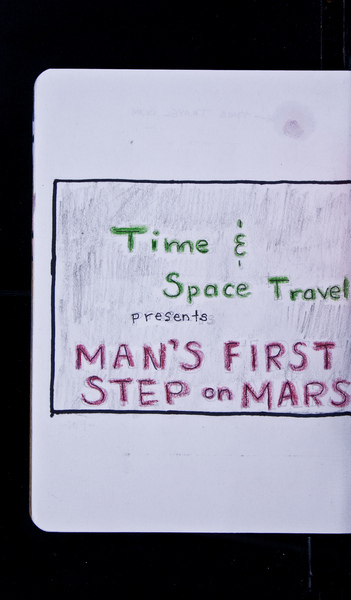 Time &
Space Travel
presents
MAN'S FIRST
STEP on MARS